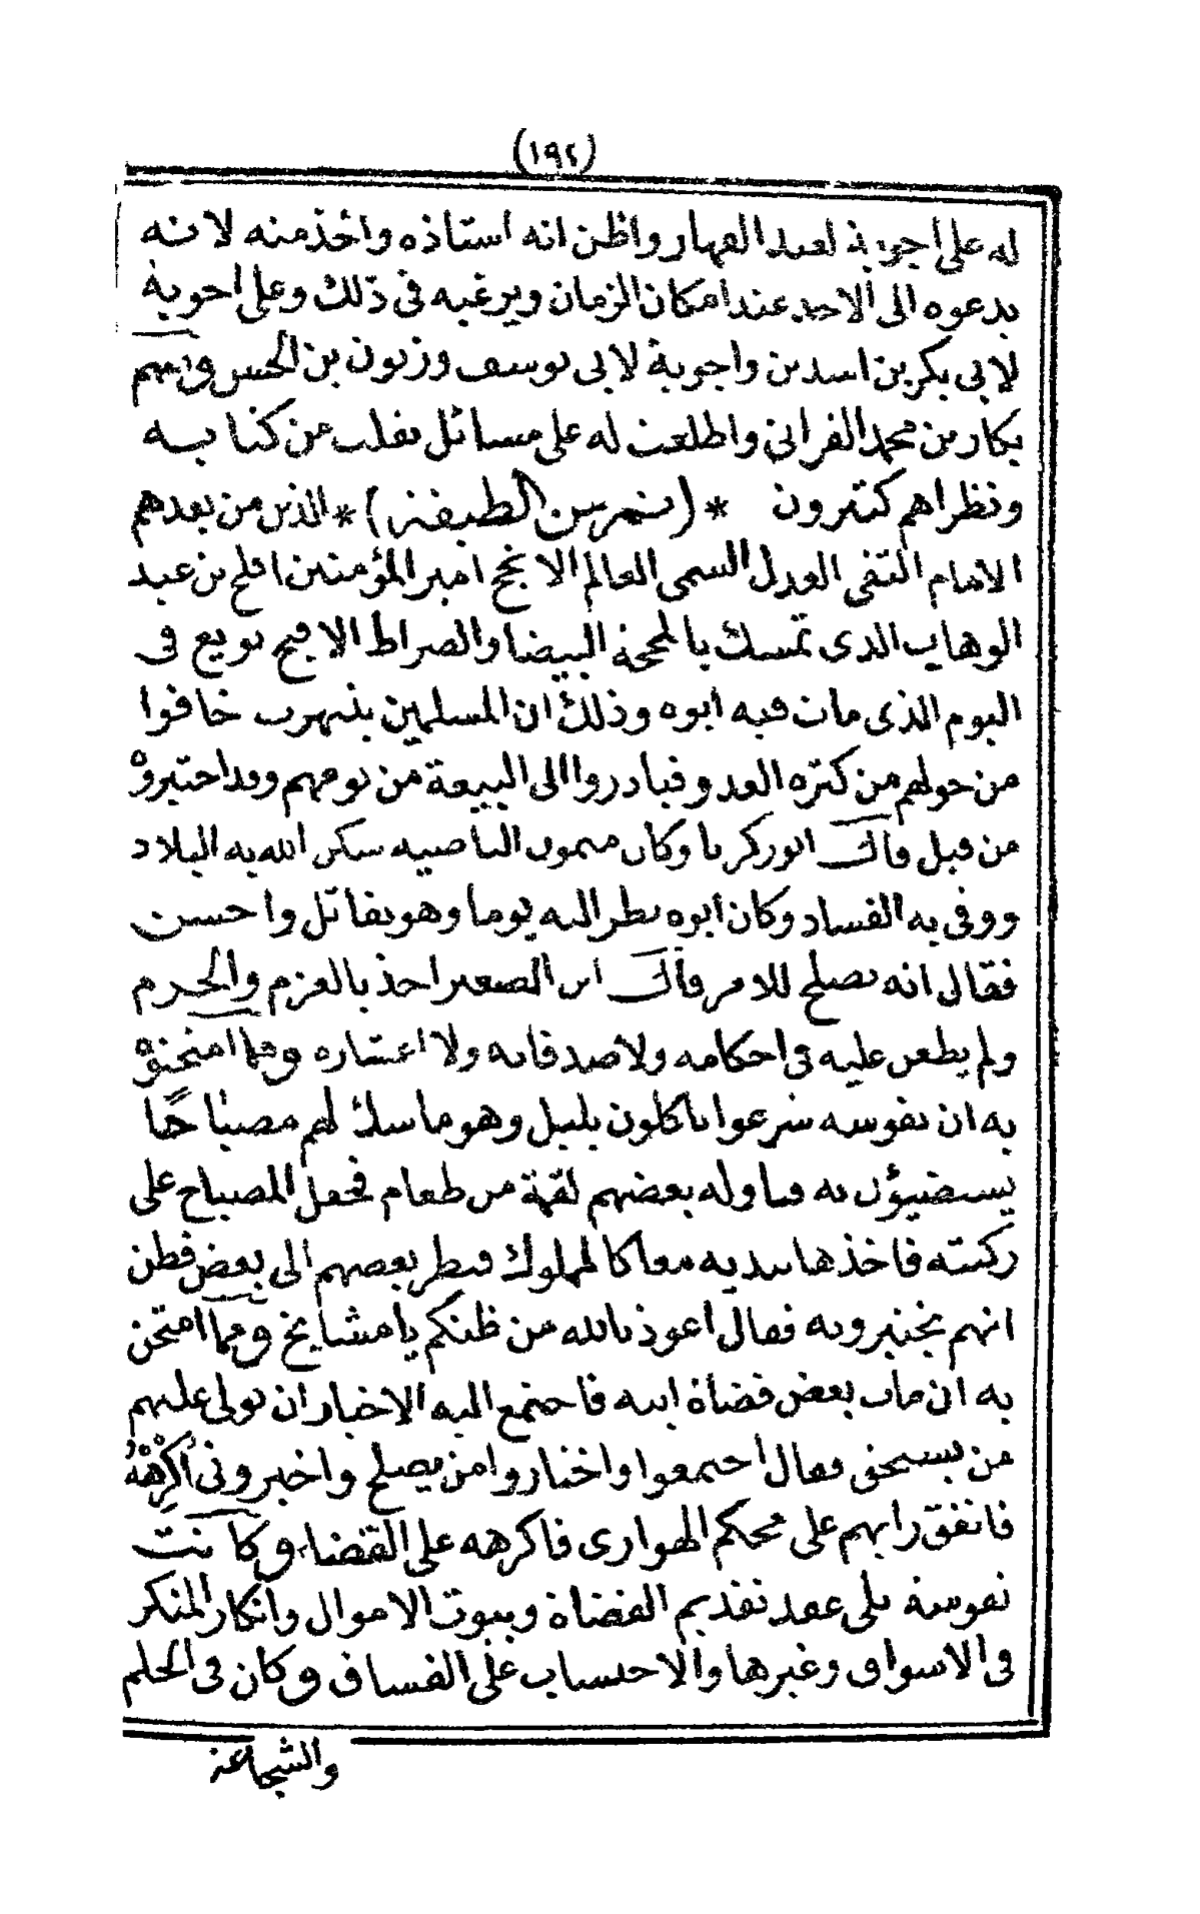 (١٩٢)
له على اجوبة لعبد القهار واظن انه استاذه واخذ منه لانه
يدعوه الى الاحد عند امكان الزمان ويرغبه فى ذلك وعلى اجوبة
لابى بكر بن اسدين واجوبة لابى يوسف وزيون بن الحسن ومنهم
بكار بن محمد الفزانى واطلعت له على مسائل نقلت من كتابه
ونظراهم كثيرون * (نمر بن الطبقة) * الذين من بعدهم
الامام التقى العدل السمى العالم الانجح امير المؤمنين افلح بن عبد
الوهاب الذى تمسك بالمحجة البيضا والصراط الافيح بويع فى
اليوم الذى مات فيه ابوه وذلك ان المسلمين بتيهرت خافوا
من حولهم من كثرة العدو فبادروا الى البيعة من يومهم وقد اختبروه
من قبل قال ابو زكريا وكان ميمون الناصيه سكن الله به البلاد
ووقى به الفساد وكان ابوه نظر اليه يوما وهو يقاتل واحسن
فقال انه يصلح للامر قال ابن الصغير اخذ بالعزم والحزم
ولم يطعن عليه فى احكامه ولا صدقاته ولا اعشاره ومما امتحنوه
به ان نفوسه شرعوا ياكلون بليل وهو ماسك لهم مصباحًا
يستضيؤن به فناوله بعضهم لقمة من طعام فجعل المصباح على
ركبته فاخذها بيديه معا كالمملوك فنظر بعضهم الى بعض فظن
انهم يختبرونه فقال اعوذ بالله من ظنكم يا مشايخ ومما امتحن
به ان مات بعض قضاة ابيه فاجتمع اليه الاخيار ان يولى عليهم
من يستحق فقال اجتمعوا واختاروا من يصلح واخبرونى أُكْرِهْهُ
فاتفق رايهم على محكم الهوارى فاكرهه على القضاء وكانت
نفوسة تلى عقد تقديم القضاة وبيوت الاموال وانكار المنكر
فى الاسواق وغيرها والاحتساب على الفساق وكان فى الحلم
والشجاعة